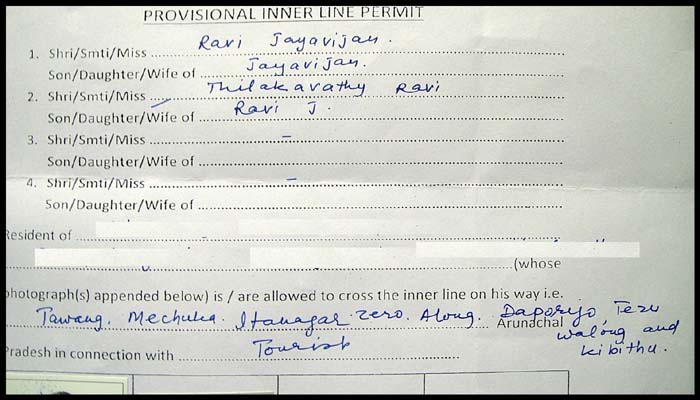 PROVISIONAL INNER LINE PERMIT
1. Shri/Smti/Miss Ravi Jayavijan.
Son/Daughter/Wife of Jayavijan.
2. Shri/Smti/Miss Thilakavathy Ravi
Son/Daughter/Wife of Ravi J.
3. Shri/Smti/Miss –
Son/Daughter/Wife of
4. Shri/Smti/Miss –
Son/Daughter/Wife of
Resident of
(whose
photograph(s) appended below) is / are allowed to cross the inner line on his way i.e.
Tawang, Mechuka. Itanagar. Zero. Along. Arunachal Daporijo, Tezu
walong and
kibithu.
Pradesh in connection with Tourist